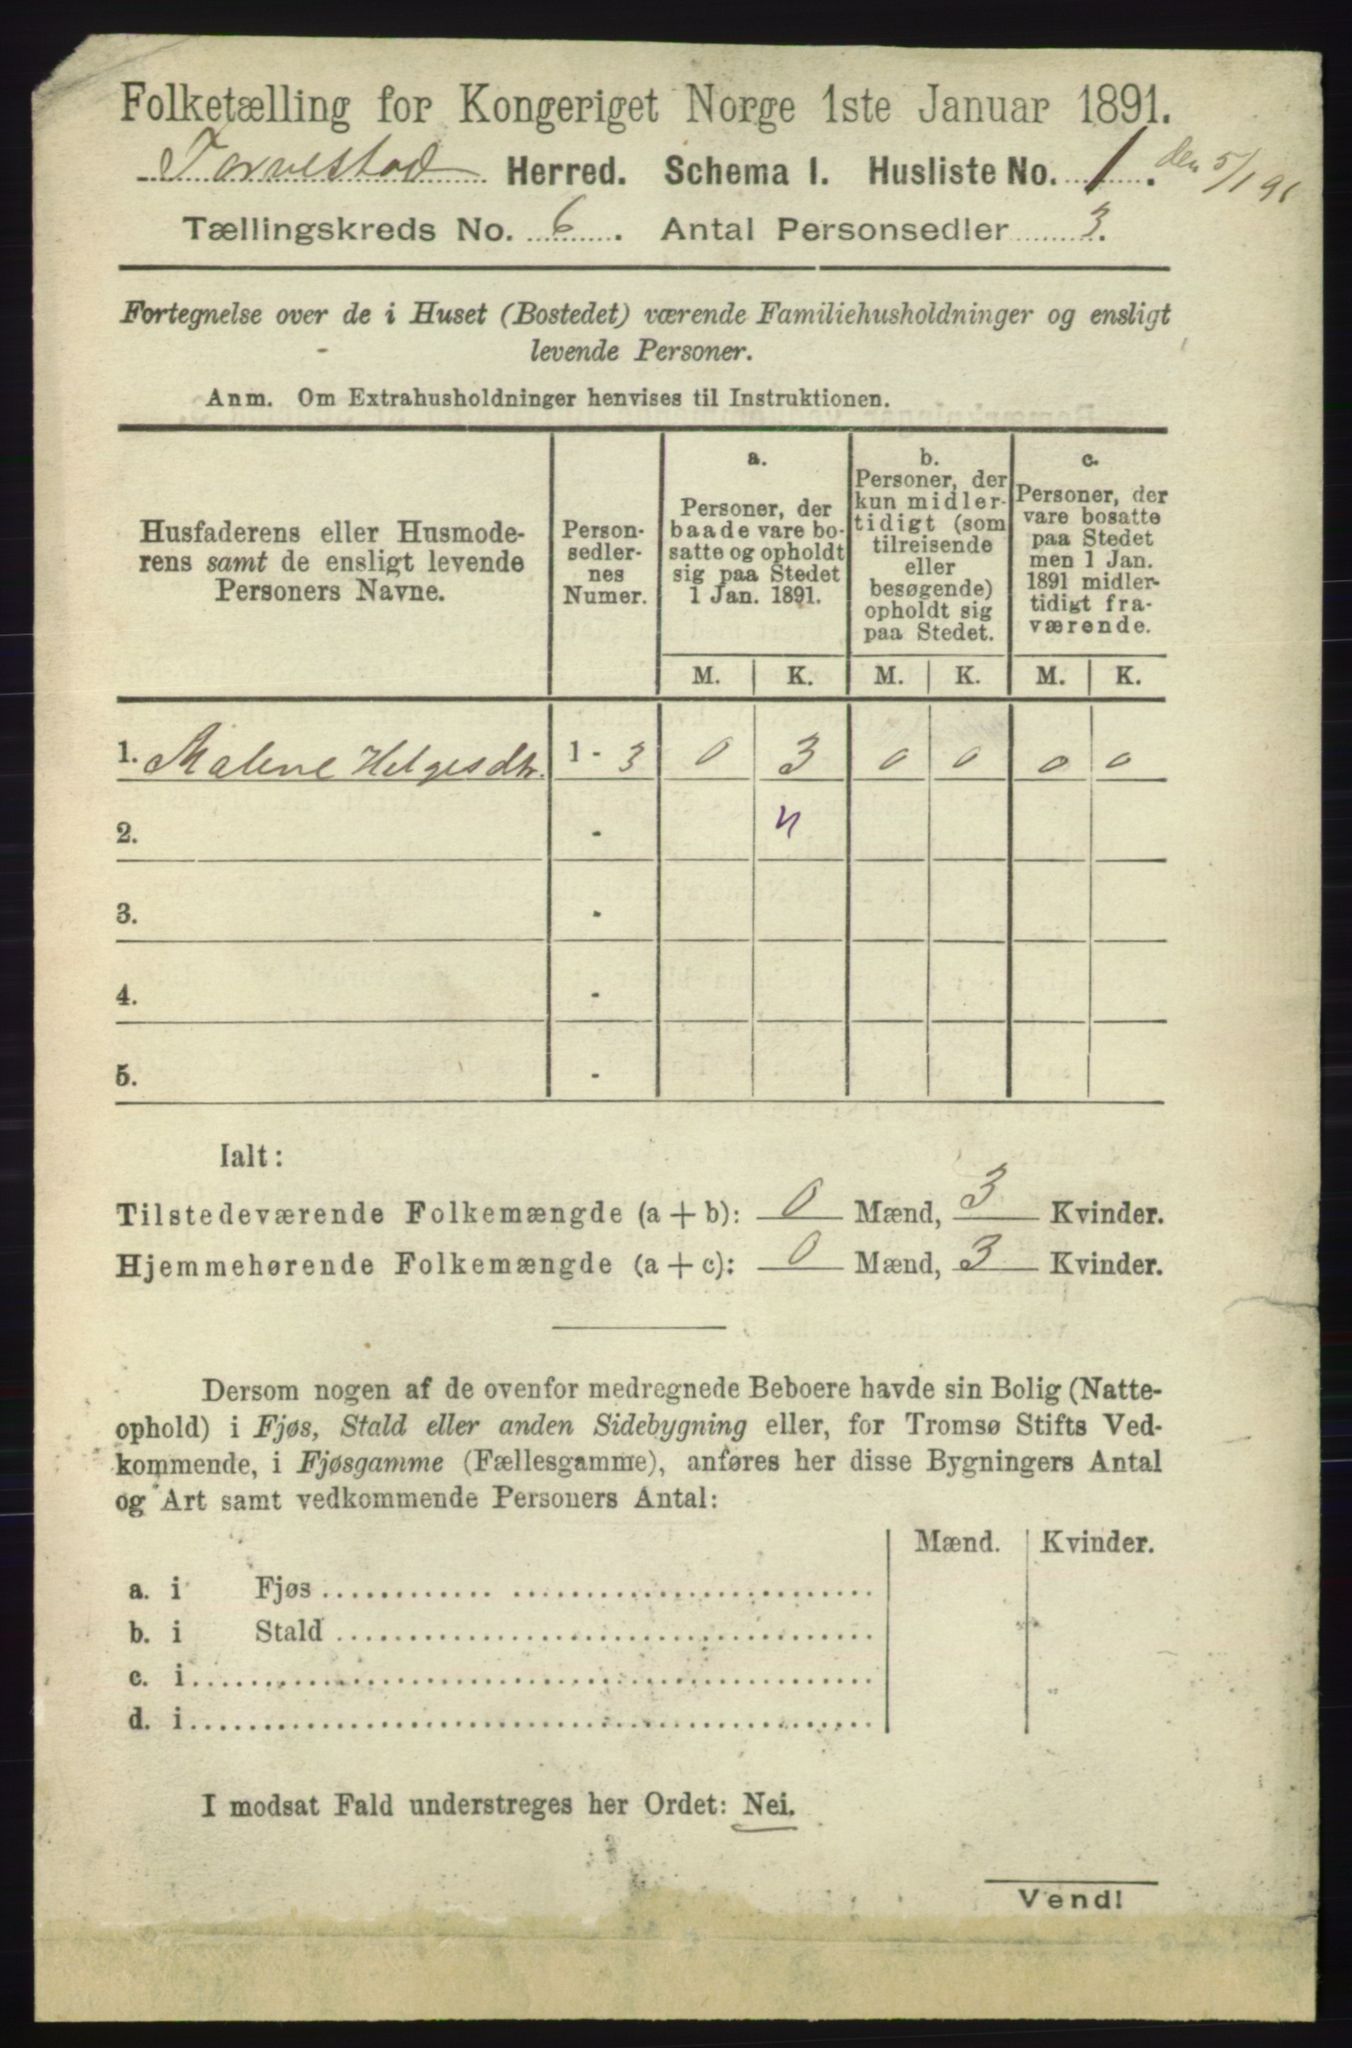 Folketælling for Kongeriget Norge 1ste Januar 1891.
Torvestad Herred. Schema I. Husliste No. 1. den 5/1 91
Tællingskreds No. 6. Antal Personsedler 3.
Fortegnelse over de i Huset (Bostedet) værende Familiehusholdninger og ensligt
levende Personer.
Anm. Om Extrahusholdninger henvises til Instruktionen.
Husfaderens eller Husmode-
rens samt de ensligt levende
Personers Navne.
Person-
sedler-
nes
Numer.
a.
Personer, der
baade vare bo-
satte og opholdt
sig paa Stedet
1 Jan. 1891.
b.
Personer, der
kun midler-
tidigt (som
tilreisende
eller
besøgende)
opholdt sig
paa Stedet.
c.
Personer, der
vare bosatte
paa Stedet
men 1 Jan.
1891 midler-
tidigt fra-
værende.
M. K. M. K. M. K.
1. Malene Helgesdtr. 1 - 3 0 3 0 0 0 0
2. -
3. -
4. -
5. -
Ialt:
Tilstedeværende Folkemængde (a + b): 0 Mænd, 3 Kvinder.
Hjemmehørende Folkemængde (a + c): 0 Mænd, 3 Kvinder.
Dersom nogen af de ovenfor medregnede Beboere havde sin Bolig (Natte-
ophold) i Fjøs, Stald eller anden Sidebygning eller, for Tromsø Stifts Ved-
kommende, i Fjøsgamme (Fællesgamme), anføres her disse Bygningers Antal
og Art samt vedkommende Personers Antal:
Mænd. Kvinder.
a. i Fjøs
b. i Stald
c. i
d. i
I modsat Fald understreges her Ordet: Nei.
Vend!